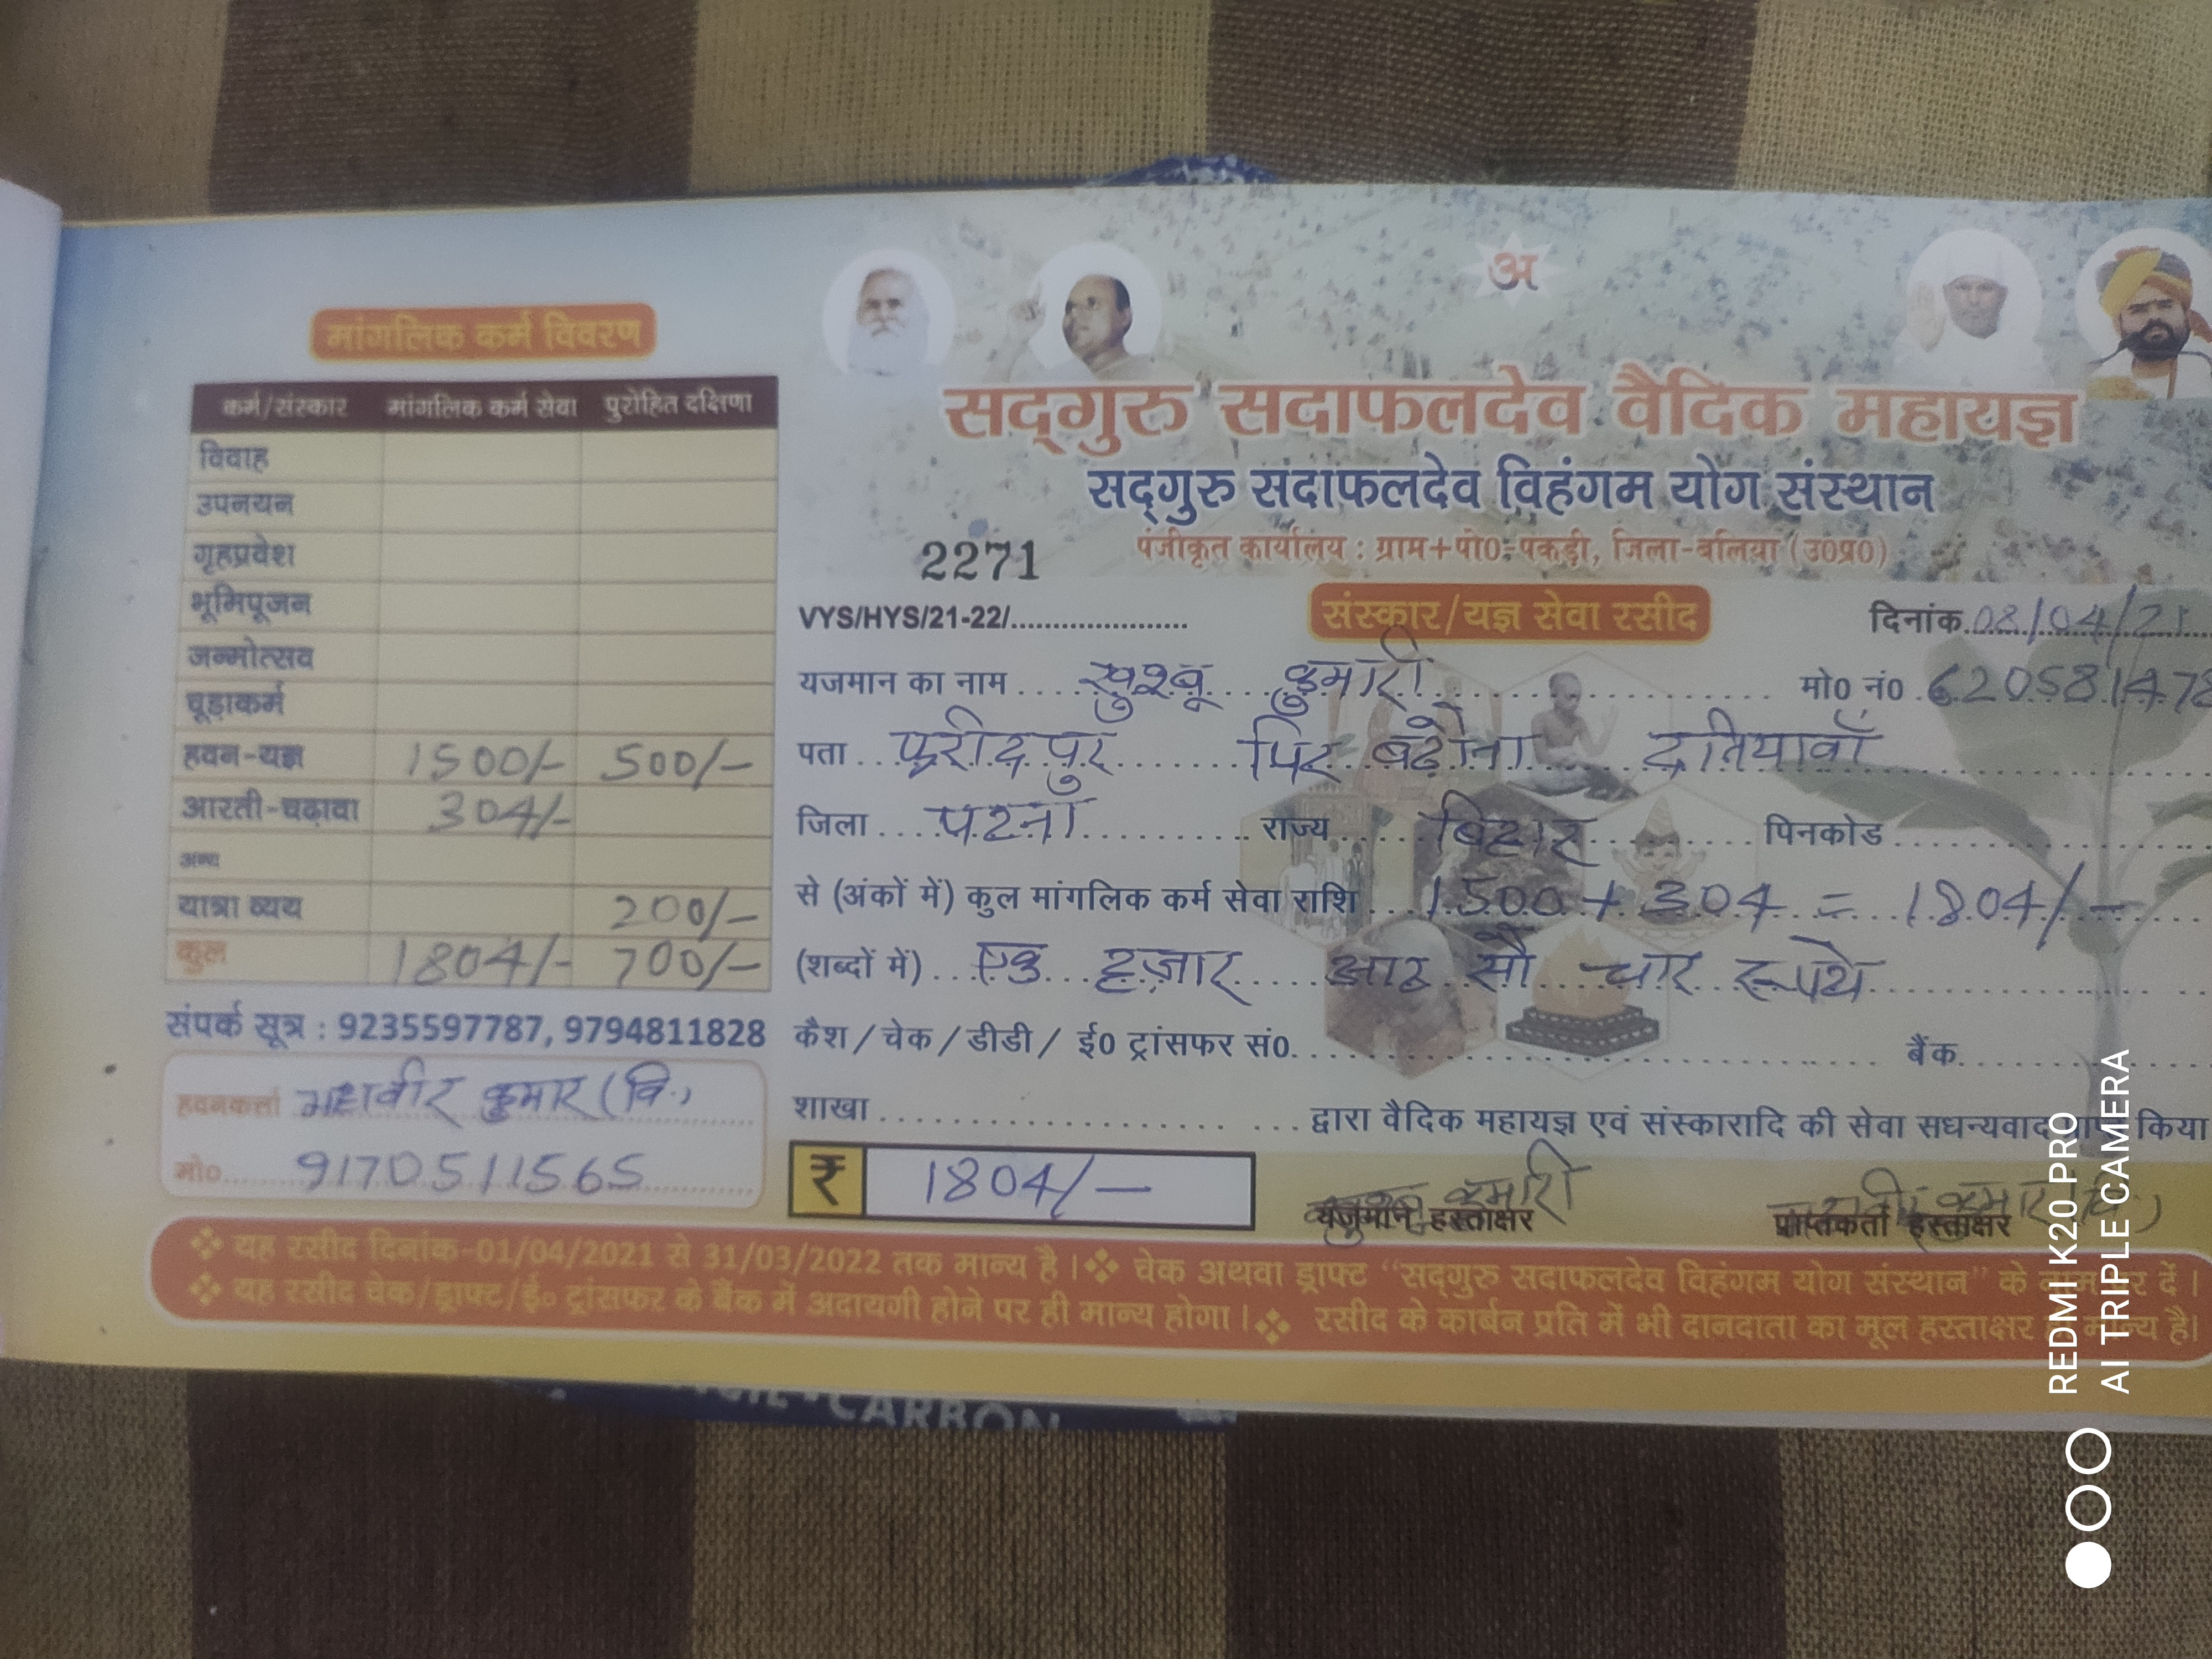 मांगलिक कर्म विवरण
कर्म/संस्कार मांगलिक कर्म सेवा पुरोहित दक्षिणा
विवाह
उपनयन
गृहप्रवेश
भूमिपूजन
जन्मोत्सव
चूड़ाकर्म
हवन-यज्ञ 1500/- 500/-
आरती-चढ़ावा 304/-
अन्य
यात्रा व्यय 200/-
कुल 1804/- 700/-
संपर्क सूत्र : 9235597787, 9794811828
हवनकर्ता महावीर कुमार (वि.)
मो०.....9170511565
अ
सद्गुरु सदाफलदेव वैदिक महायज्ञ
सद्गुरु सदाफलदेव विहंगम योग संस्थान
पंजीकृत कार्यालय : ग्राम+पो0-पकड़ी, जिला-बलिया (उ0प्र0)
2271
VYS/HYS/21-22/......................
संस्कार/यज्ञ सेवा रसीद
दिनांक 08/04/21
यजमान का नाम .... खुश्बू कुमारी
मो0 नं0 .620581478
पता ... फरीदपुर पिर बढ़ौना दनियावाँ
जिला .... पटना राज्य .... बिहार पिनकोड
से (अंकों में) कुल मांगलिक कर्म सेवा राशि 1500 + 304 = 1804/-
(शब्दों में) ... एक हज़ार आठ सौ चार रूपये
कैश / चेक / डीडी / ई0 ट्रांसफर सं0. बैंक
शाखा द्वारा वैदिक महायज्ञ एवं संस्कारादि की सेवा सधन्यवाद किया
₹ 1804/-
कुमारी
यजमान हस्ताक्षर
कुमार (वि.)
प्राप्तकर्ता हस्ताक्षर
❖ यह रसीद दिनांक-01/04/2021 से 31/03/2022 तक मान्य है । ❖ चेक अथवा ड्राफ्ट "सद्गुरु सदाफलदेव विहंगम योग संस्थान" के दें ।
❖ यह रसीद चेक/ड्राफ्ट/ई० ट्रांसफर के बैंक में अदायगी होने पर ही मान्य होगा । ❖ रसीद के कार्बन प्रति में भी दानदाता का मूल हस्ताक्षर है।
CARBON
REDMI K20 PRO
AI TRIPLE CAMERA